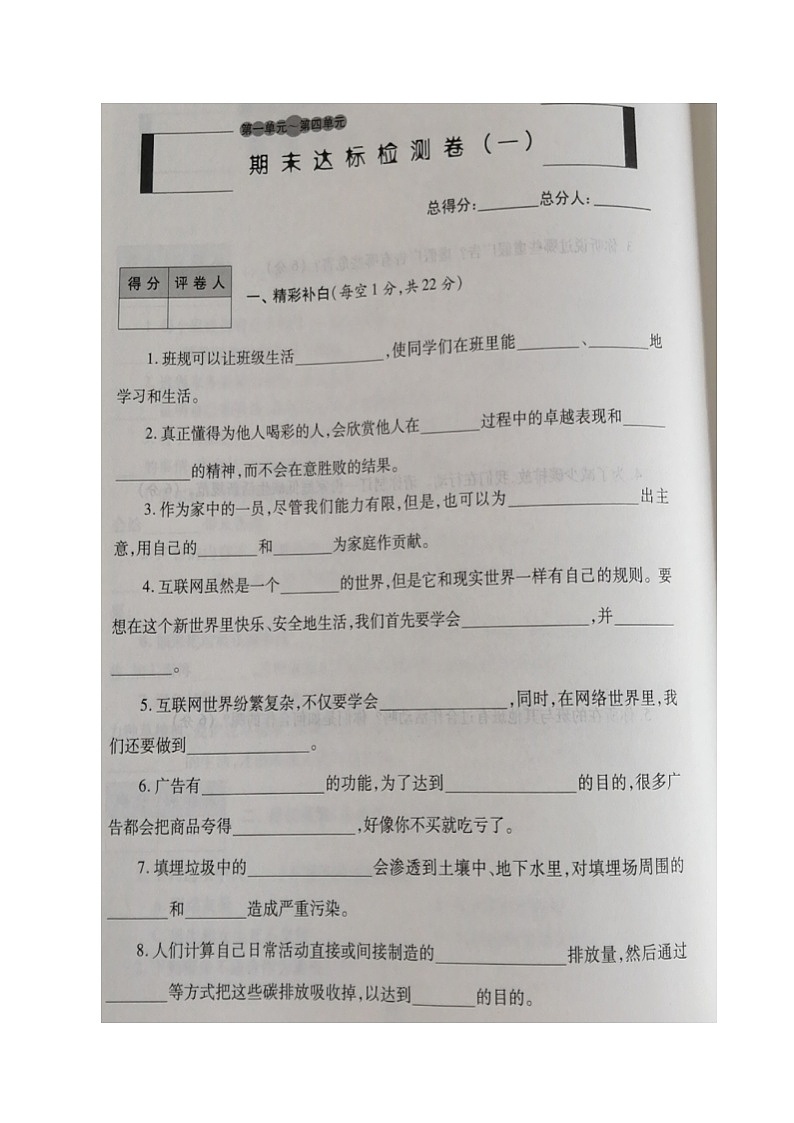 第一单元~第四单元
期末达标检测卷(一)
总得分:________ 总分人:________
得分 评卷人
一、精彩补白(每空1分,共22分)
1. 班规可以让班级生活____________,使同学们在班里能________、________地
学习和生活。
2. 真正懂得为他人喝彩的人,会欣赏他人在________过程中的卓越表现和______
__________的精神,而不会在意胜败的结果。
3. 作为家中的一员,尽管我们能力有限,但是,也可以为__________________出主
意,用自己的________和________为家庭作贡献。
4. 互联网虽然是一个________的世界,但是它和现实世界一样有自己的规则。要
想在这个新世界里快乐、安全地生活,我们首先要学会________________,并________
________。
5. 互联网世界纷繁复杂,不仅要学会________________,同时,在网络世界里,我
们还要做到________________。
6. 广告有________________的功能,为了达到________________的目的,很多广
告都会把商品夸得________________,好像你不买就吃亏了。
7. 填埋垃圾中的________________会渗透到土壤中、地下水里,对填埋场周围的
________和________造成严重污染。
8. 人们计算自己日常活动直接或间接制造的________________排放量,然后通过
________等方式把这些碳排放吸收掉,以达到________的目的。